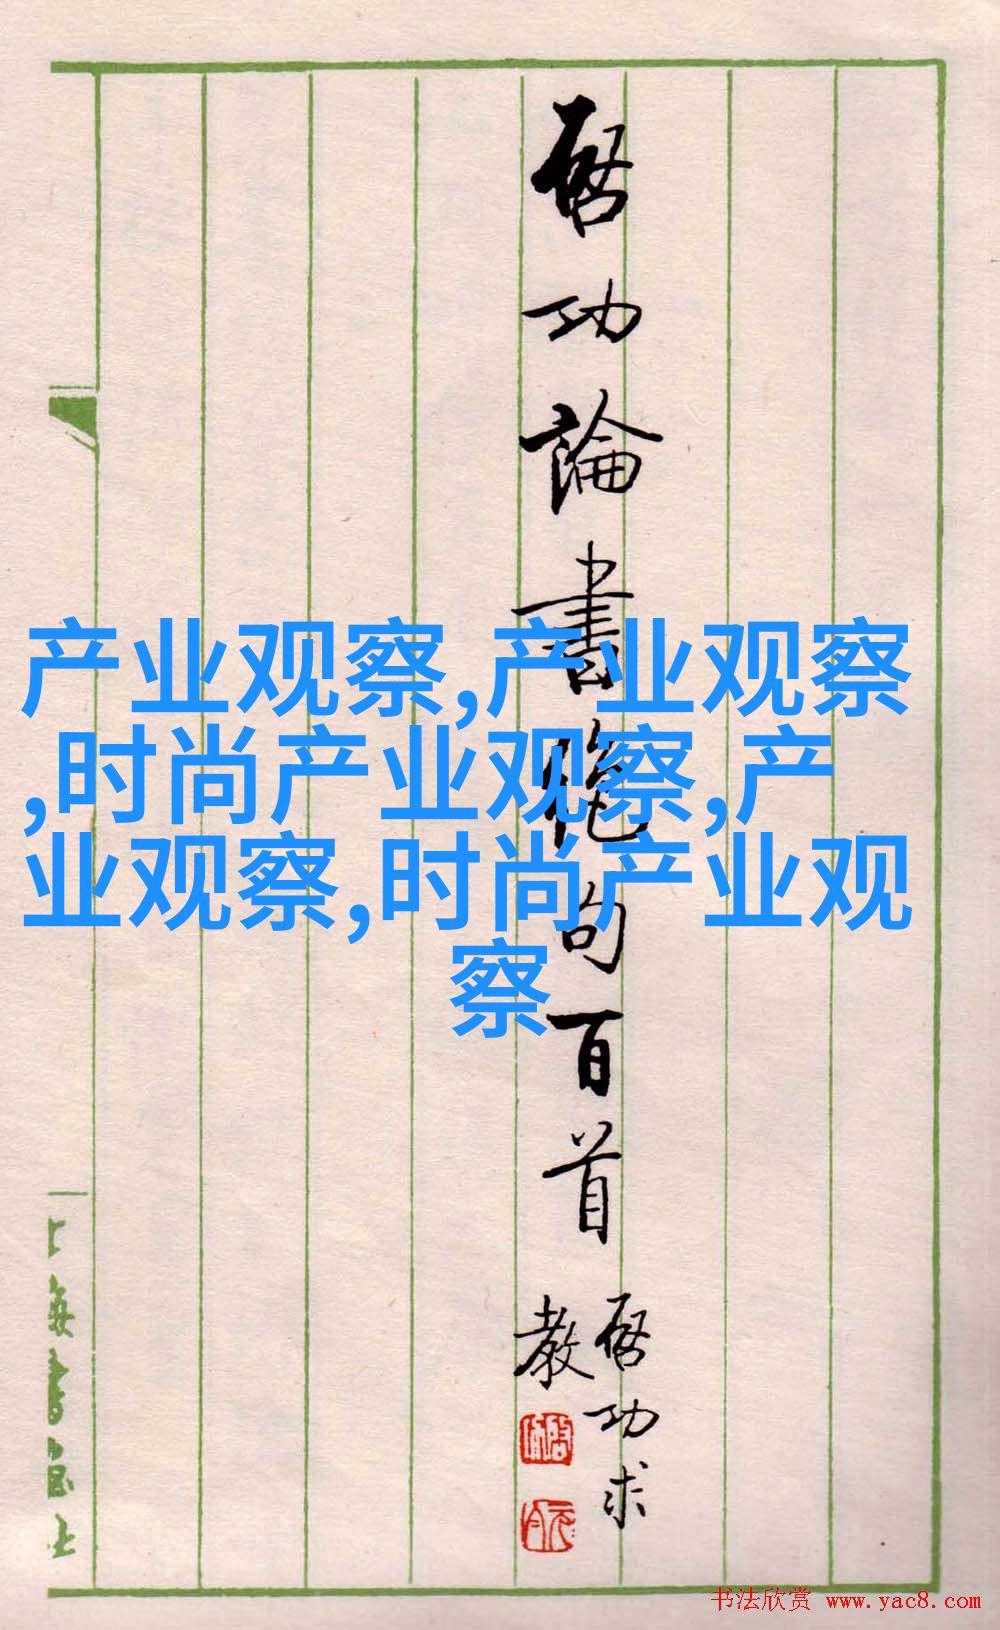 啓功論書絶句百首
啓功求
教
产业观察,产业观察
,时尚产业观察,产
业观察,时尚产业观
察
上海書畫社
书法欣赏 www.yac8.com